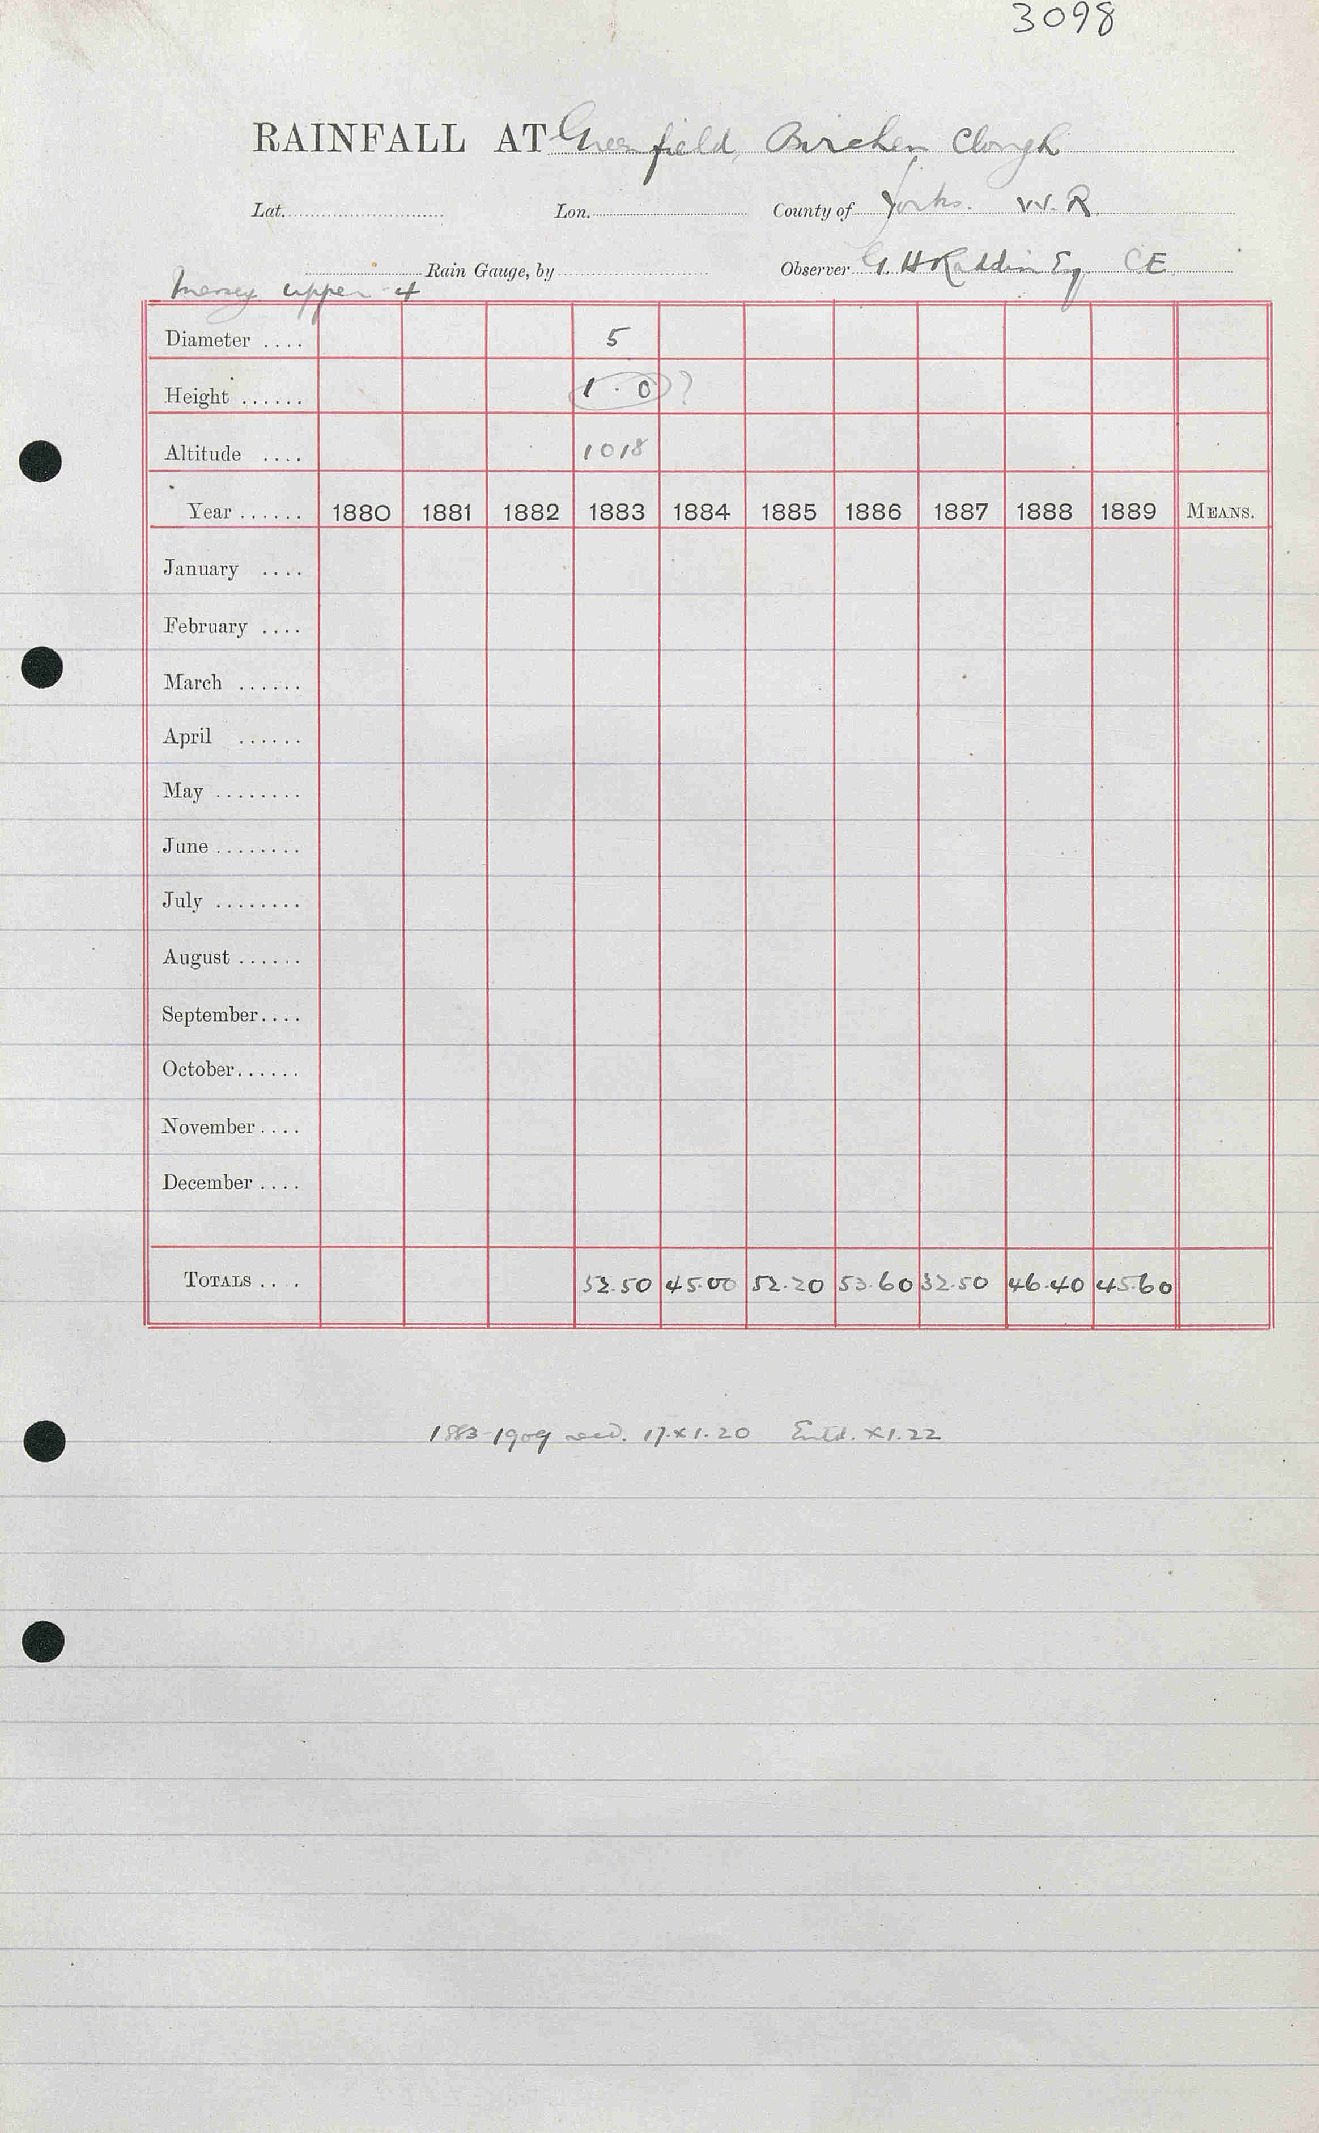 3098
RAINFALL AT Greenfield, Birchen Clough
Lat. Lon. County of Yorks. W.R.
Rain Gauge, by Observer G. H. Raddin Esq CE
Mersey upper 4
Diameter .... 5
Height ...... 1.0 ?
Altitude .... 1018
Year ...... 1880 1881 1882 1883 1884 1885 1886 1887 1888 1889 MEANS.
January ....
February ....
March ......
April ......
May ........
June ........
July ........
August ......
September....
October......
November ....
December ....
TOTALS .... 52.50 45.00 52.20 53.60 32.50 46.40 45.60
1883-1909 recd. 17.XI.20 Entd. XI.22